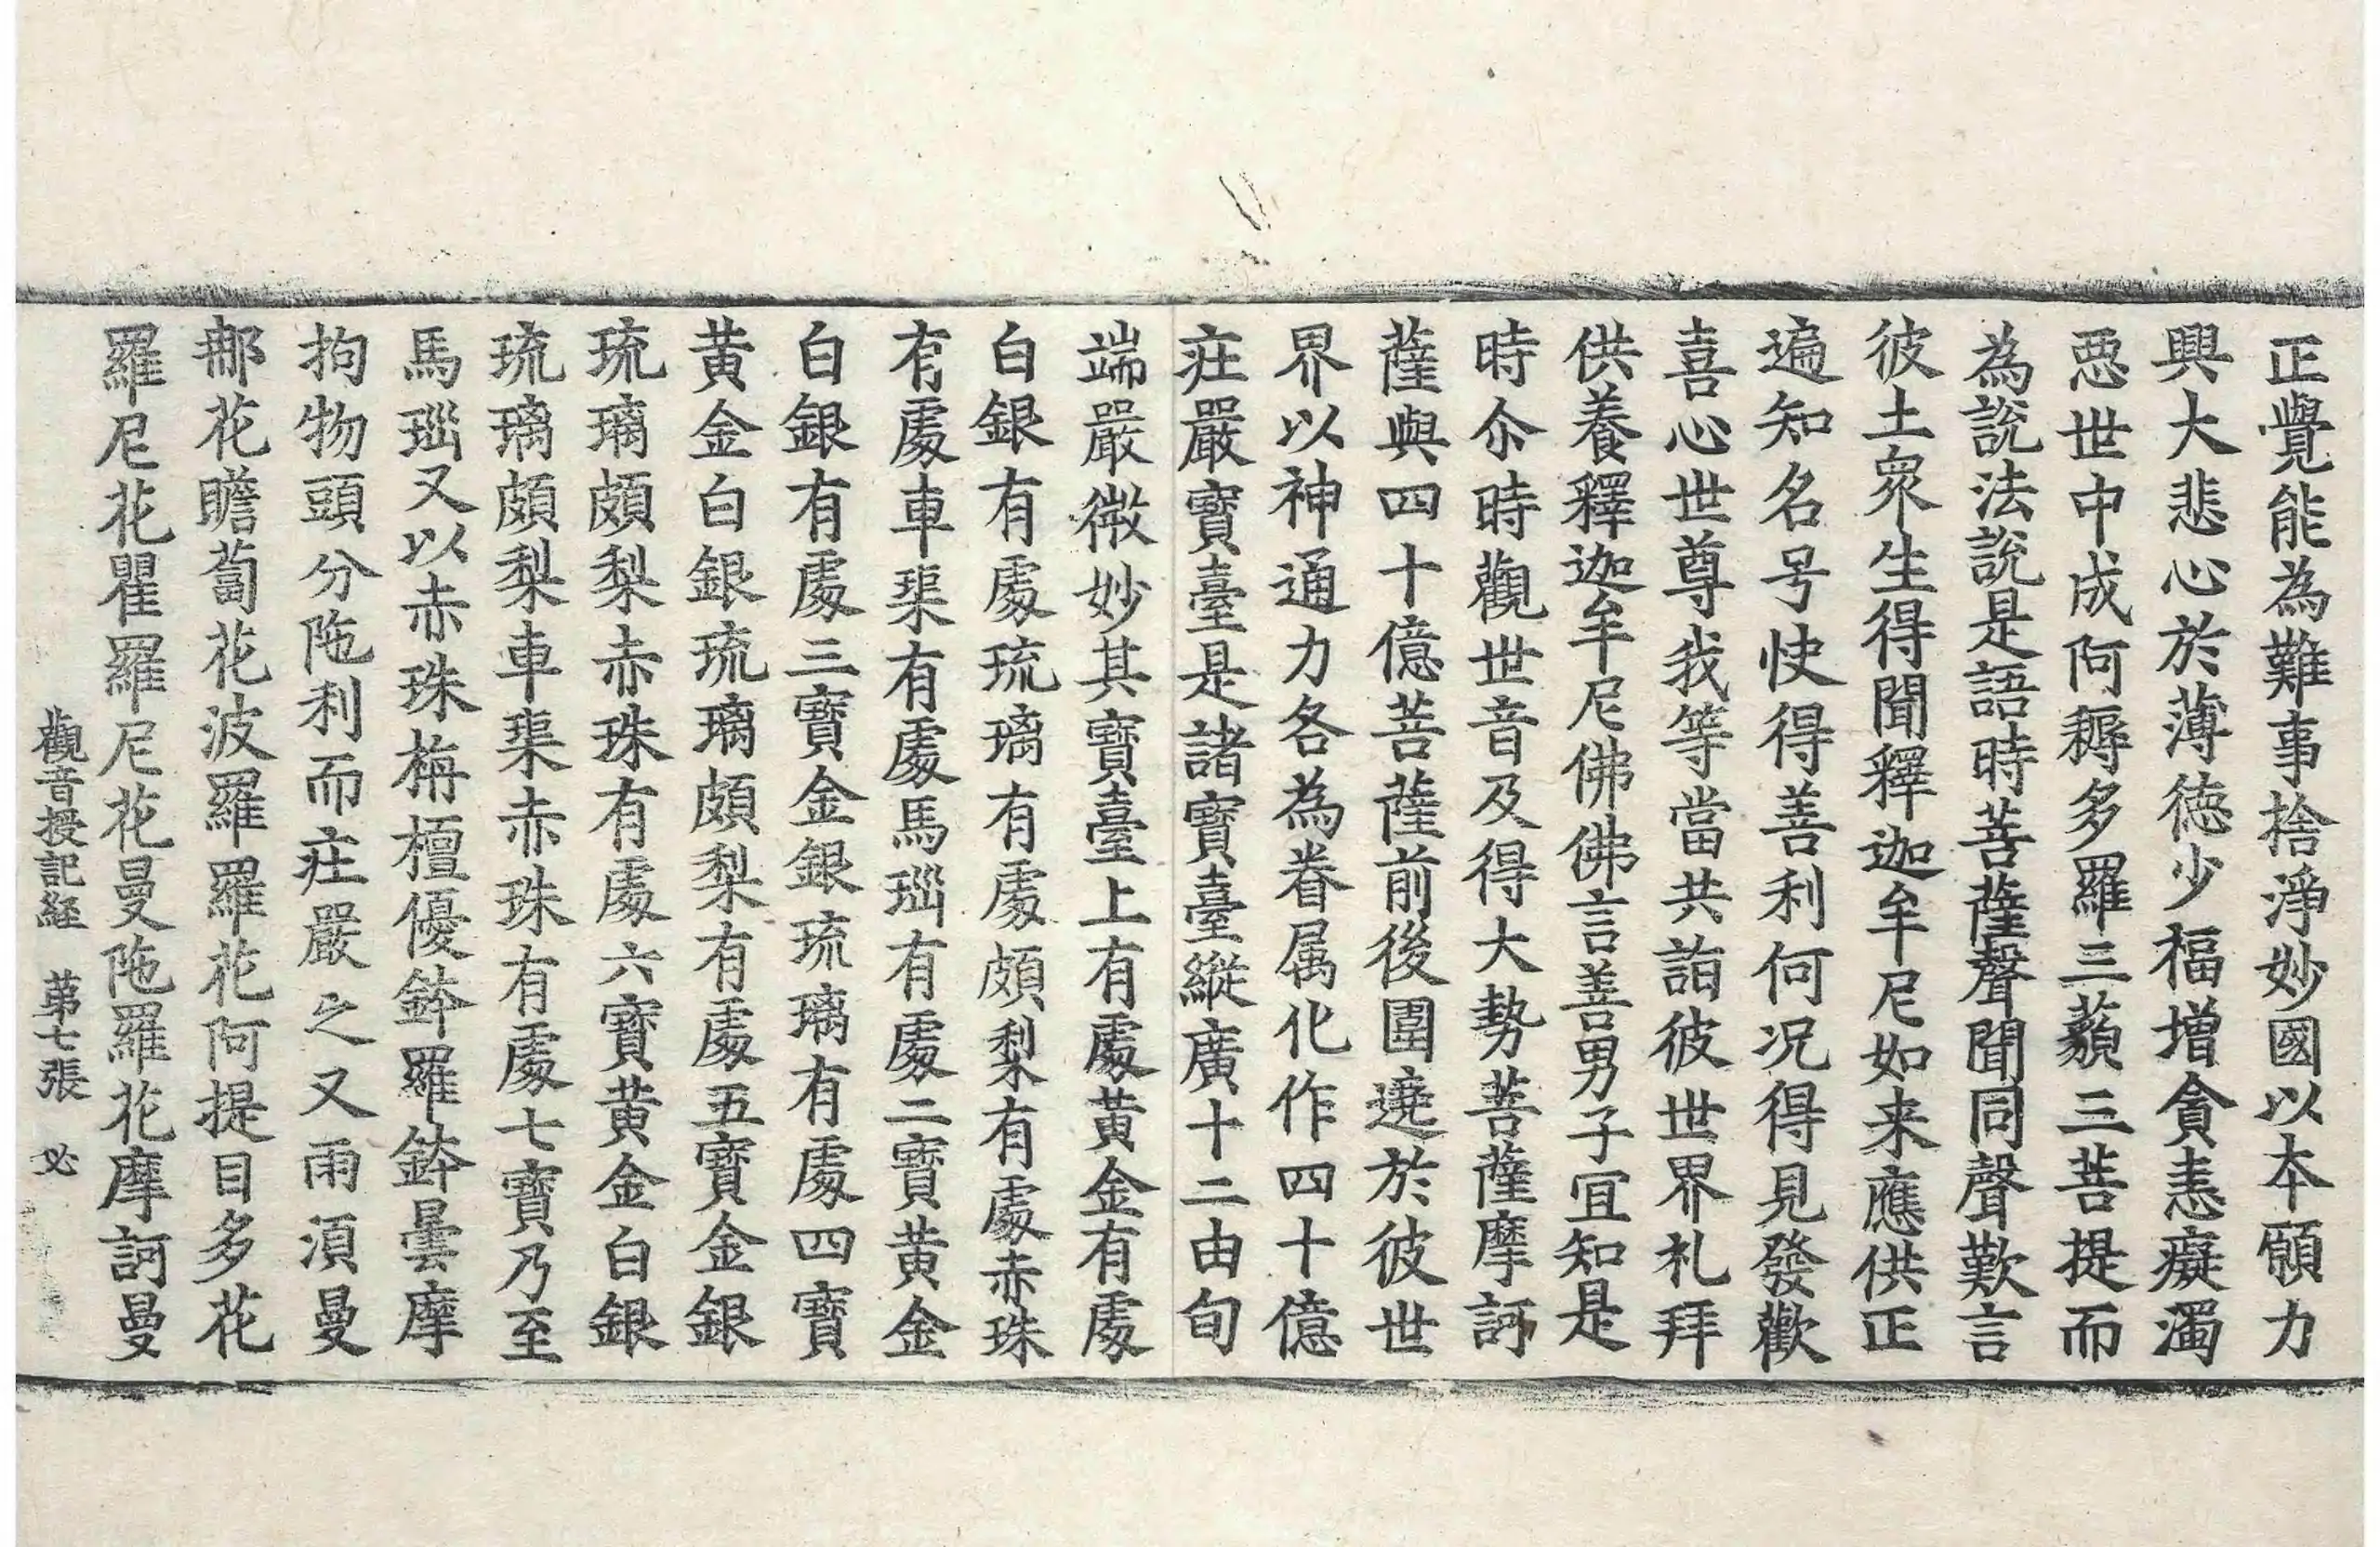 正覺能為難事捨淨妙國以本願力
興大悲心於薄德少福增貪恚癡濁
惡世中成阿耨多羅三藐三菩提而
為說法說是語時菩薩聲聞同聲歎言
彼土眾生得聞釋迦牟尼如来應供正
遍知名号快得善利何况得見發歡
喜心世尊我等當共詣彼世界礼拜
供養釋迦牟尼佛佛言善男子宜知是
時尒時觀世音及得大勢菩薩摩訶
薩與四十億菩薩前後圍遶於彼世
界以神通力各為眷属化作四十億
莊嚴寶臺是諸寶臺縱廣十二由旬
端嚴微妙其寶臺上有處黃金有處
白銀有處琉璃有處頗梨有處赤珠
有處車𤦲有處馬瑙有處二寶黃金
白銀有處三寶金銀琉璃有處四寶
黃金白銀琉璃頗梨有處五寶金銀
琉璃頗梨赤珠有處六寶黃金白銀
琉璃頗梨車𤦲赤珠有處七寶乃至
馬瑙又以赤珠栴檀優鉢羅鉢曇摩
拘物頭分陁利而莊嚴之又雨湏曼
那花瞻蔔花波羅羅花阿提目多花
羅尼花瞿羅尼花曼陁羅花摩訶曼
觀音授記経 苐七張 必